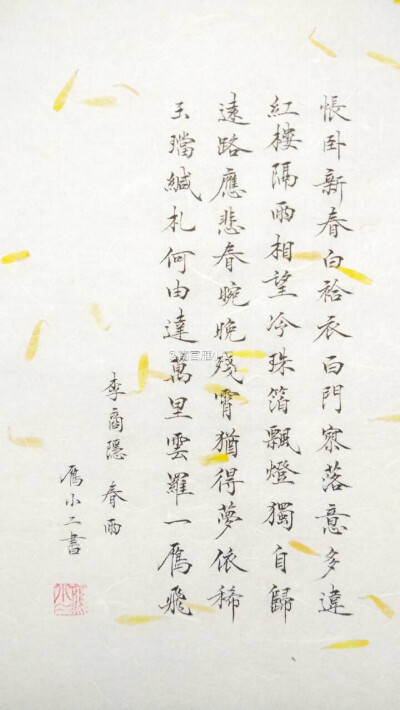 悵卧新春白袷衣白門寥落意多違
紅樓隔雨相望冷珠箔飄燈獨自歸
遠路應悲春晼晚殘霄猶得夢依稀
玉璫緘札何由達萬里雲羅一雁飛
李商隱 春雨
雁小二書